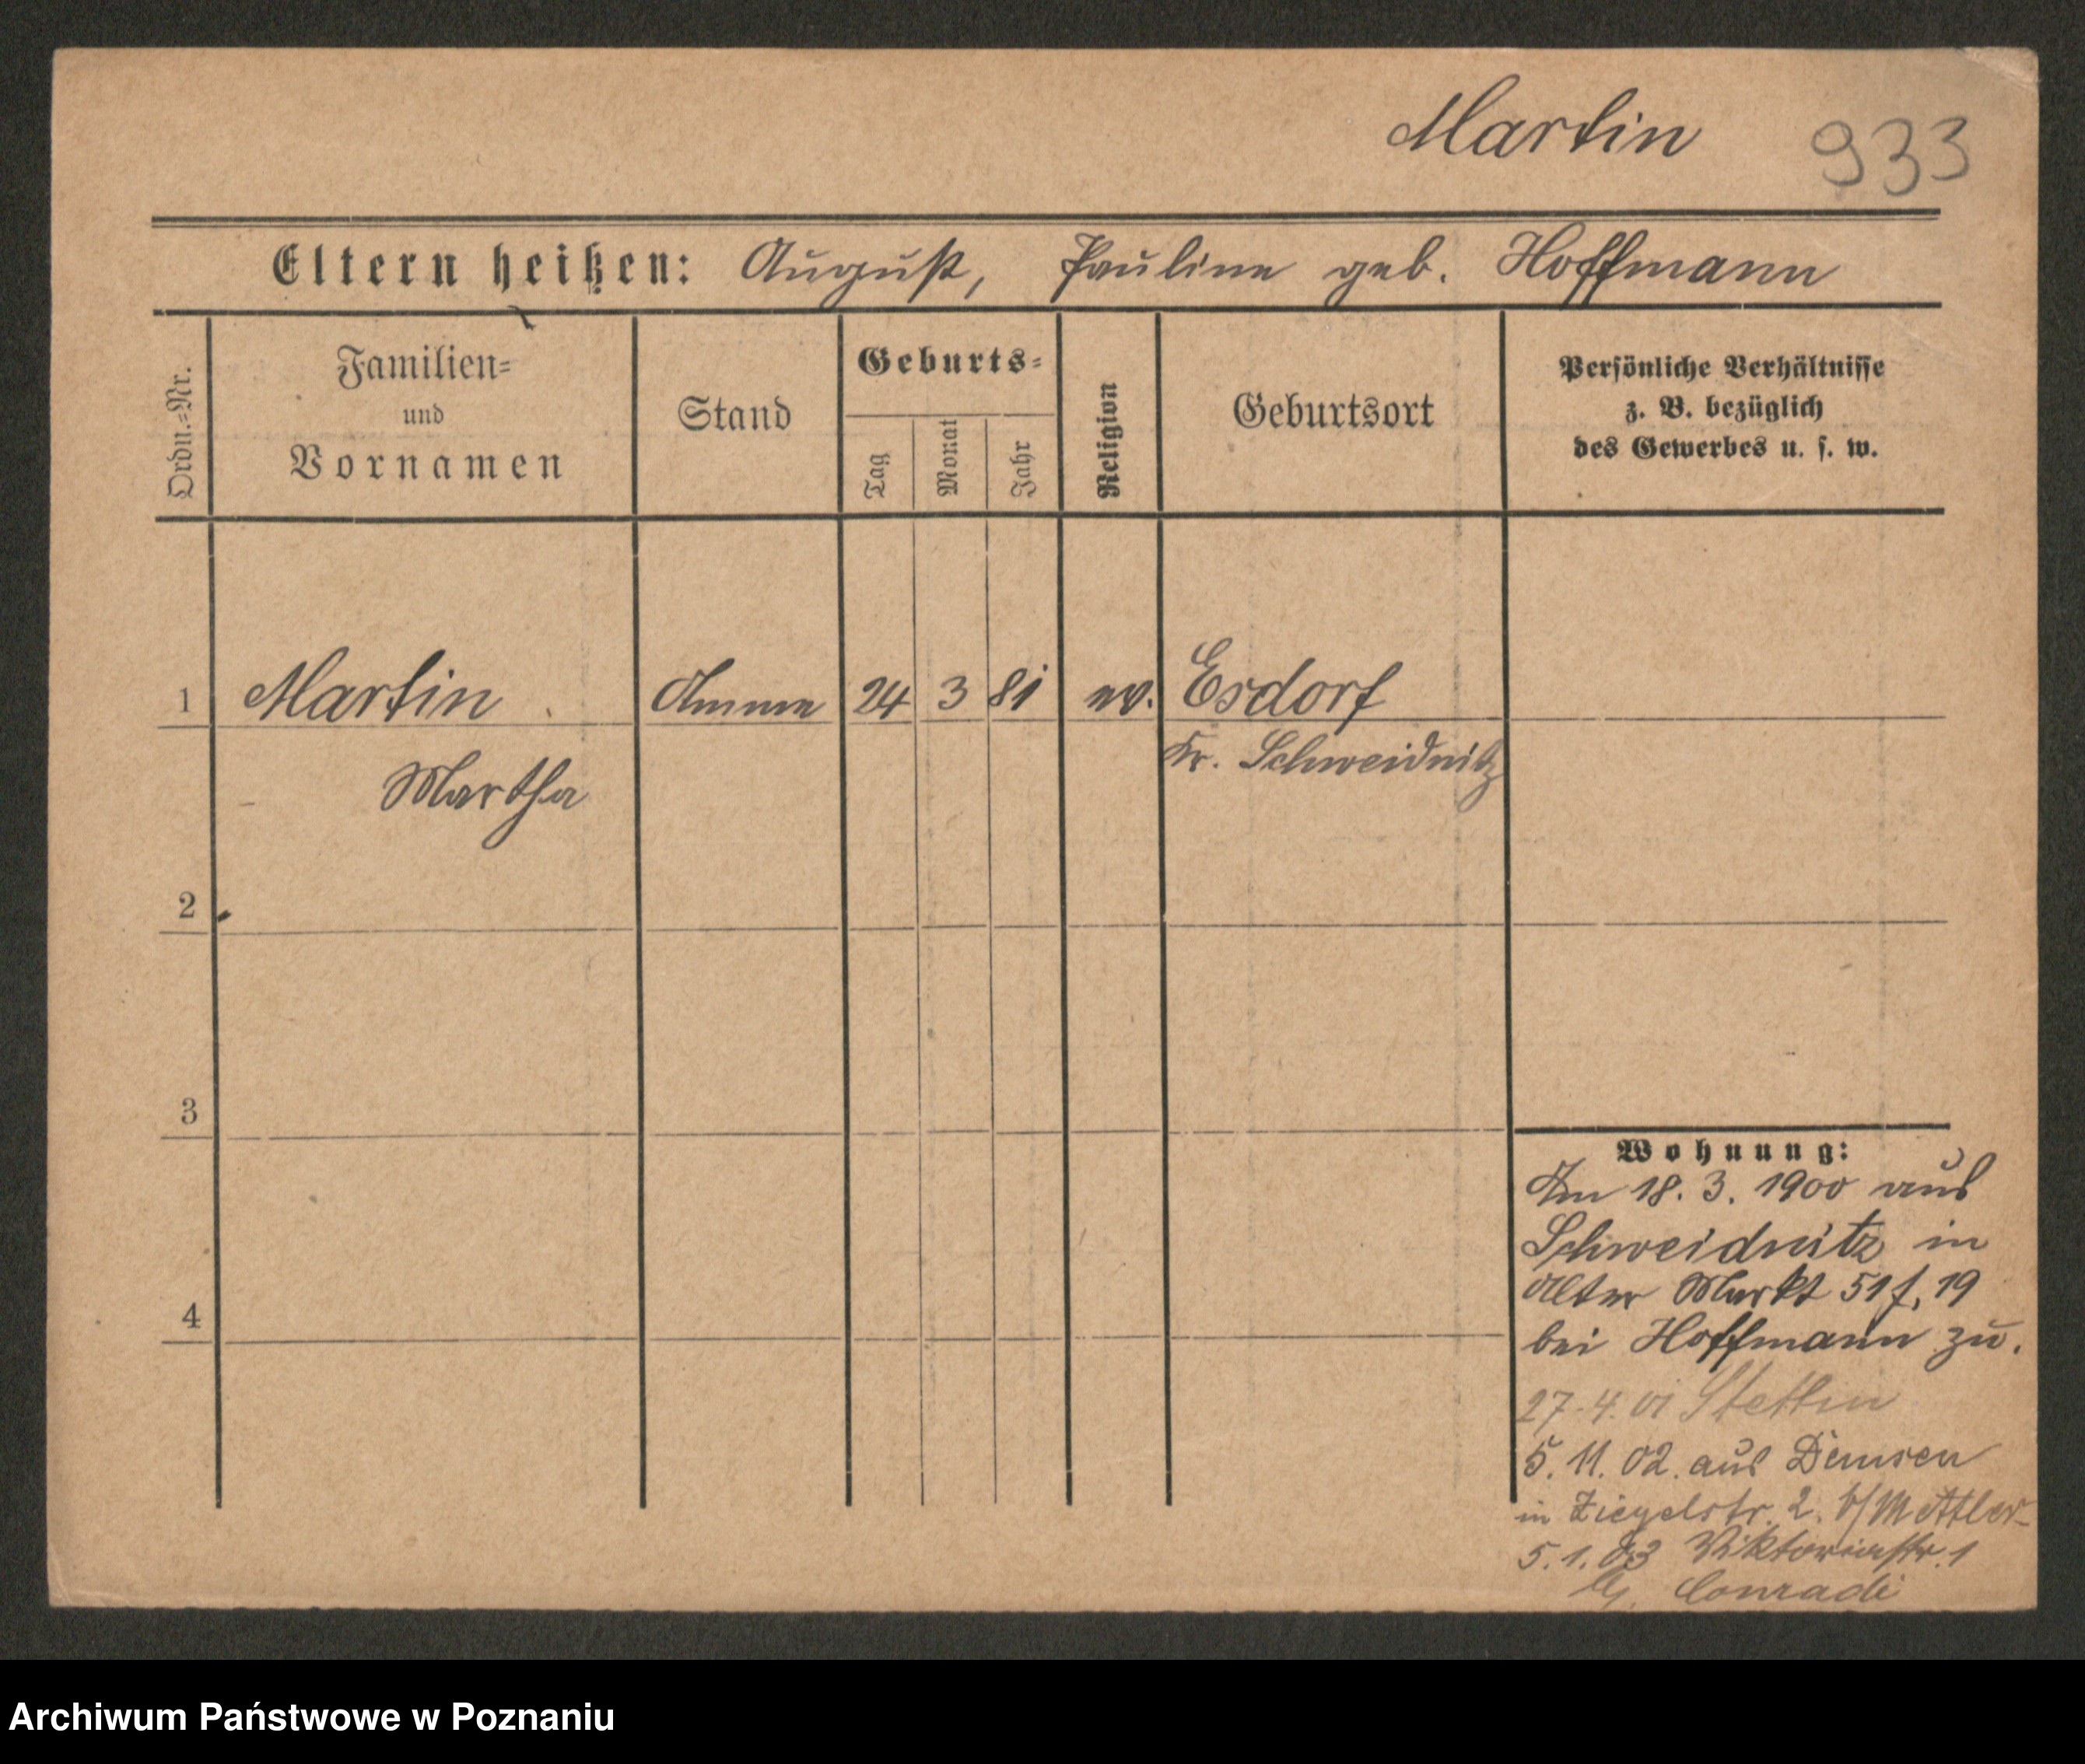 Martin 933
Eltern heißen: August, Pauline geb. Hoffmann
Ordn.-Nr.
Familien-
und
Vornamen
Stand
Geburts-
Tag
Monat
Jahr
Religion
Geburtsort
Persönliche Verhältnisse
z. B. bezüglich
des Gewerbes u. s. w.
1 Martin Amme 24 3 81 ev. Esdorf
Martha Kr. Schweidnitz
2
3
4
Wohnung:
Am 18. 3. 1900 aus
Schweidnitz in
Alter Markt 51 f. 19
bei Hoffmann zu.
27.4.01 Stettin
5. 11. 02. aus Demsen
in Ziegelstr. 2. b/Mettler
5. 1. 03 Viktoriastr. 1
Conradi
Archiwum Państwowe w Poznaniu